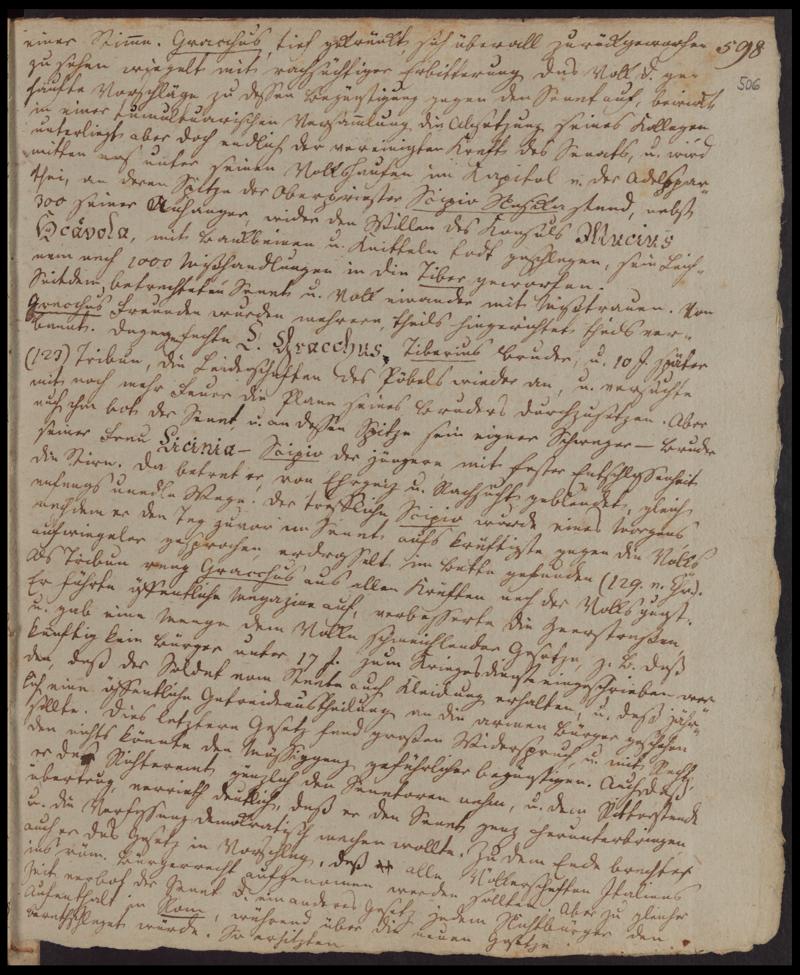 einer Stimme. Gracchus, tief gekränkt, sich überall zurückgeworfen 598
zu sehen wiegelt mit rachsüchtiger Erbitterung das Volk d. ge- 506
häufte Vorschläge zu dessen Begünstigung gegen den Senat auf, bewirkt
in einer tumultuarischen Versammlung die Absetzung seines Kollegen
unterliegt aber doch endlich der vereinigten Kraft des Senats, u. wird
mitten unter seinen Volkshaufen im Kapitol v. der Adelspar-
thei, an deren Spitze der Oberpriester Scipio Nasika stand, nebst
300 seiner Anhänger, wider den Willen des Konsuls Mucius
Scävola, mit Bankbeinen u. Knitteln todt geschlagen, sein Leich-
nam nach 1000 Mißhandlungen in die Tiber geworfen.
Seitdem betrachteten Senat u. Volk einander mit Mißtrauen. Von
Gracchus Freunden wurden mehrere, theils hingerichtet, theils ver-
bannt. Dagegen fachte C. Gracchus, Tiberius Bruder, u. 10 J. später
(123) Tribun, die Leidenschaften des Pöbels wieder an, u. versuchte
mit noch mehr Feuer die Plane seines Bruders durchzusetzen. Aber
auch ihm bot der Senat u. an dessen Spitze sein eigner Schwager – Bruder
seiner Frau Licinia – Scipio der jüngere mit fester Entschlossenheit
die Stirn. Da betrat er, von Ehrgeiz u. Rachsucht geblendet, gleich
anfangs unedle Wege. Der trefliche Scipio wurde eines Morgens
nachdem er den Tag zuvor im Senat aufs kräftigste gegen die Volks
aufwiegeler gesprochen erdrosselt im Bette gefunden (129. v. Chr.).
Als Tribun rang Gracchus aus allen Kräften nach der Volksgunst.
Er führte öffentliche Magazine auf, verbesserte die Heerstraßen,
u. gab eine Menge dem Volke schmeichlender Gesetze, z. B. daß
künftig kein Bürger unter 17 J. zum Kriegsdienste eingeschrieben wer
den, daß der Soldat vom Senate auch Kleidung erhalten, u. daß jähr-
lich eine öffentliche Getreideaustheilung an die armen Bürger geschehen
sollte. Dies letztere Gesetz fand großen Widerspruch, u. mit Recht,
denn nichts könnte den Müssiggang gefährlicher begünstigen. Auch daß
er das Richteramt gänzlich den Senatoren nahm, u. dem Ritterstande
übertrug, verrieth deutlich, daß er den Senat ganz herunterbringen
u. die Verfassung demokratisch machen wollte. Zu dem Ende brachte
auch er das Gesetz in Vorschlag, daß alle Völkerschaften Italiens
ins röm. Bürgerrecht aufgenommen werden sollten. Aber zu gleicher
Zeit verbot der Senat d. ein anderes Gesetz jedem Nichtbürger den
Aufenthalt in Rom, während über die neuen Gesetze
berathschlaget würde. So ersitzten